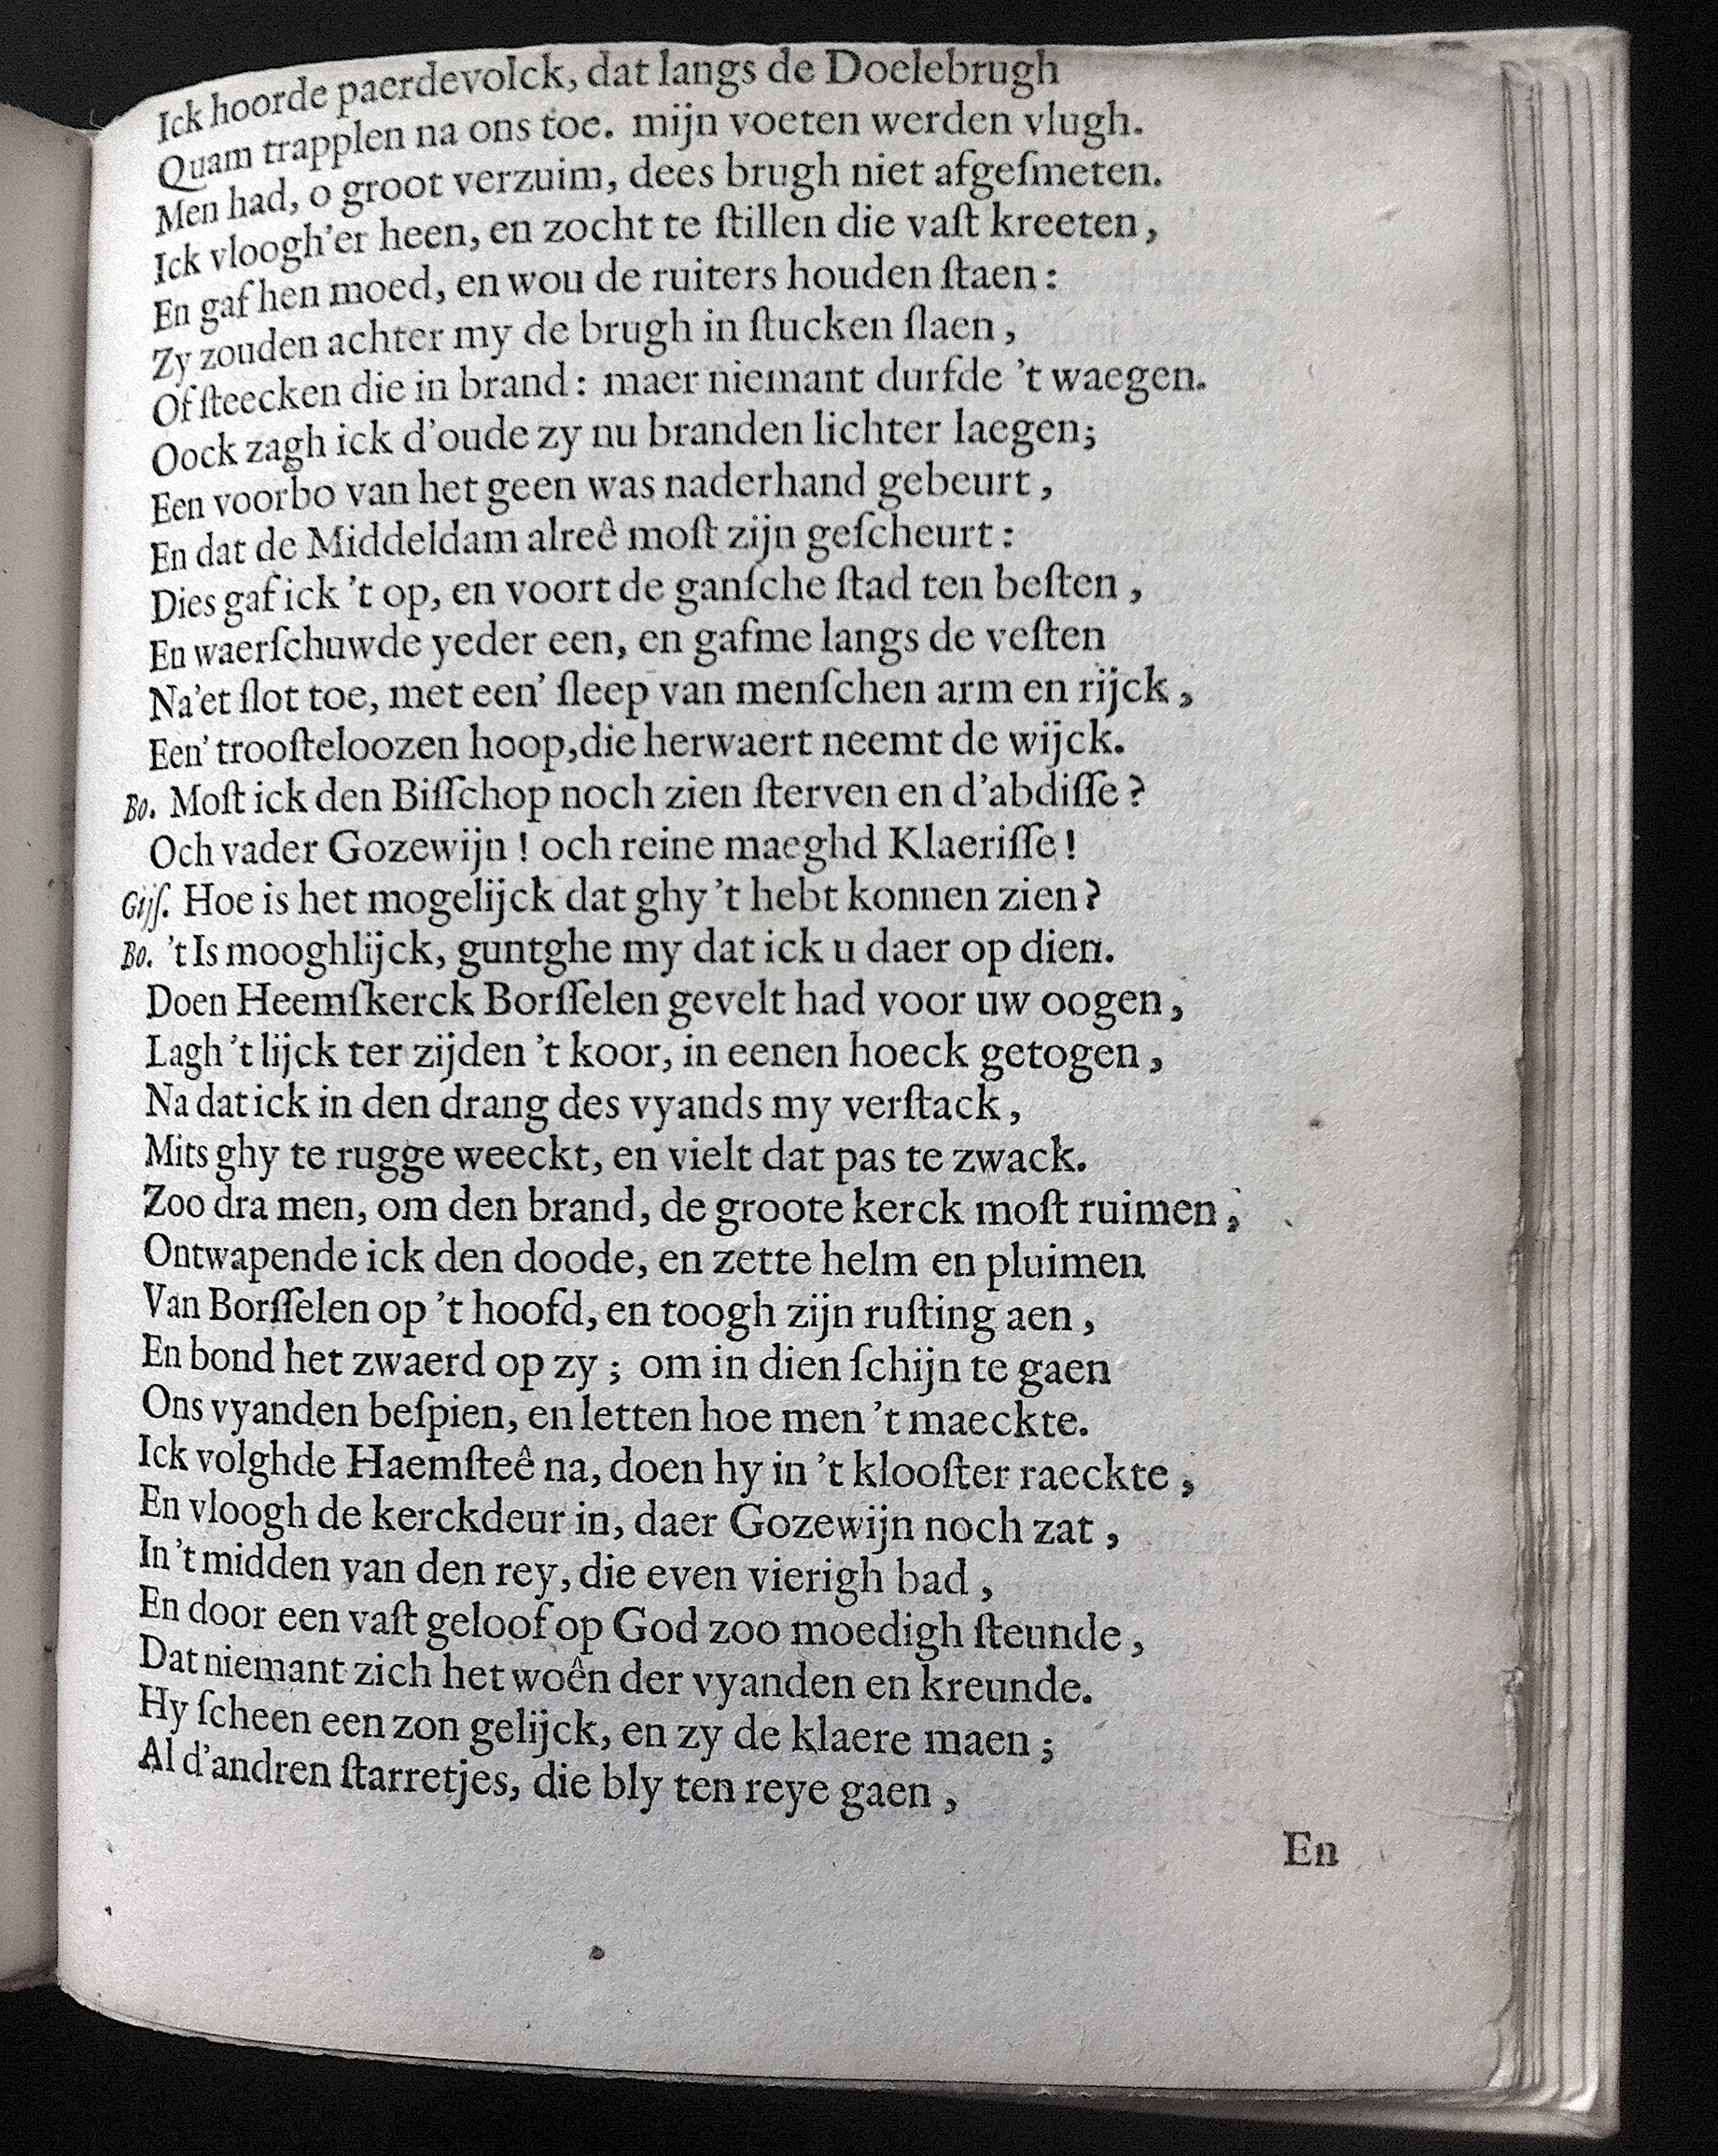 Ick hoorde paerdevolck, dat langs de Doelebrugh
Quam trapplen na ons toe. mijn voeten werden vlugh.
Men had, o groot verzuim, dees brugh niet afgeſmeten.
Ick vloogh'er heen, en zocht te ſtillen die vaſt kreeten,
En gaf hen moed, en wou de ruiters houden ſtaen:
Zy zouden achter my de brugh in ſtucken ſlaen,
Of ſteecken die in brand: maer niemant durfde 't waegen.
Oock zagh ick d'oude zy nu branden lichter laegen;
Een voorbo van het geen was naderhand gebeurt,
En dat de Middeldam alreê moſt zijn geſcheurt:
Dies gaf ick 't op, en voort de ganſche ſtad ten beſten,
En waerſchuwde yeder een, en gafme langs de veſten
Na'et ſlot toe, met een' ſleep van menſchen arm en rijck,
Een' trooſteloozen hoop, die herwaert neemt de wijck.
Bo. Moſt ick den Biſſchop noch zien ſterven en d'abdiſſe?
Och vader Gozewijn! och reine maeghd Klaeriſſe!
Gijſ. Hoe is het mogelijck dat ghy 't hebt konnen zien?
Bo. 't Is mooghlijck, guntghe my dat ick u daer op dien.
Doen Heemſkerck Borſſelen gevelt had voor uw oogen,
Lagh 't lijck ter zijden 't koor, in eenen hoeck getogen,
Na dat ick in den drang des vyands my verſtack,
Mits ghy te rugge weeckt, en vielt dat pas te zwack.
Zoo dra men, om den brand, de groote kerck moſt ruimen,
Ontwapende ick den doode, en zette helm en pluimen
Van Borſſelen op 't hoofd, en toogh zijn ruſting aen,
En bond het zwaerd op zy; om in dien ſchijn te gaen
Ons vyanden beſpien, en letten hoe men 't maeckte.
Ick volghde Haemſteê na, doen hy in 't klooſter raeckte,
En vloogh de kerckdeur in, daer Gozewijn noch zat,
In 't midden van den rey, die even vierigh bad,
En door een vaſt geloof op God zoo moedigh ſteunde,
Dat niemant zich het woên der vyanden en kreunde.
Hy ſcheen een zon gelijck, en zy de klaere maen;
Al d'andren ſtarretjes, die bly ten reye gaen,
En